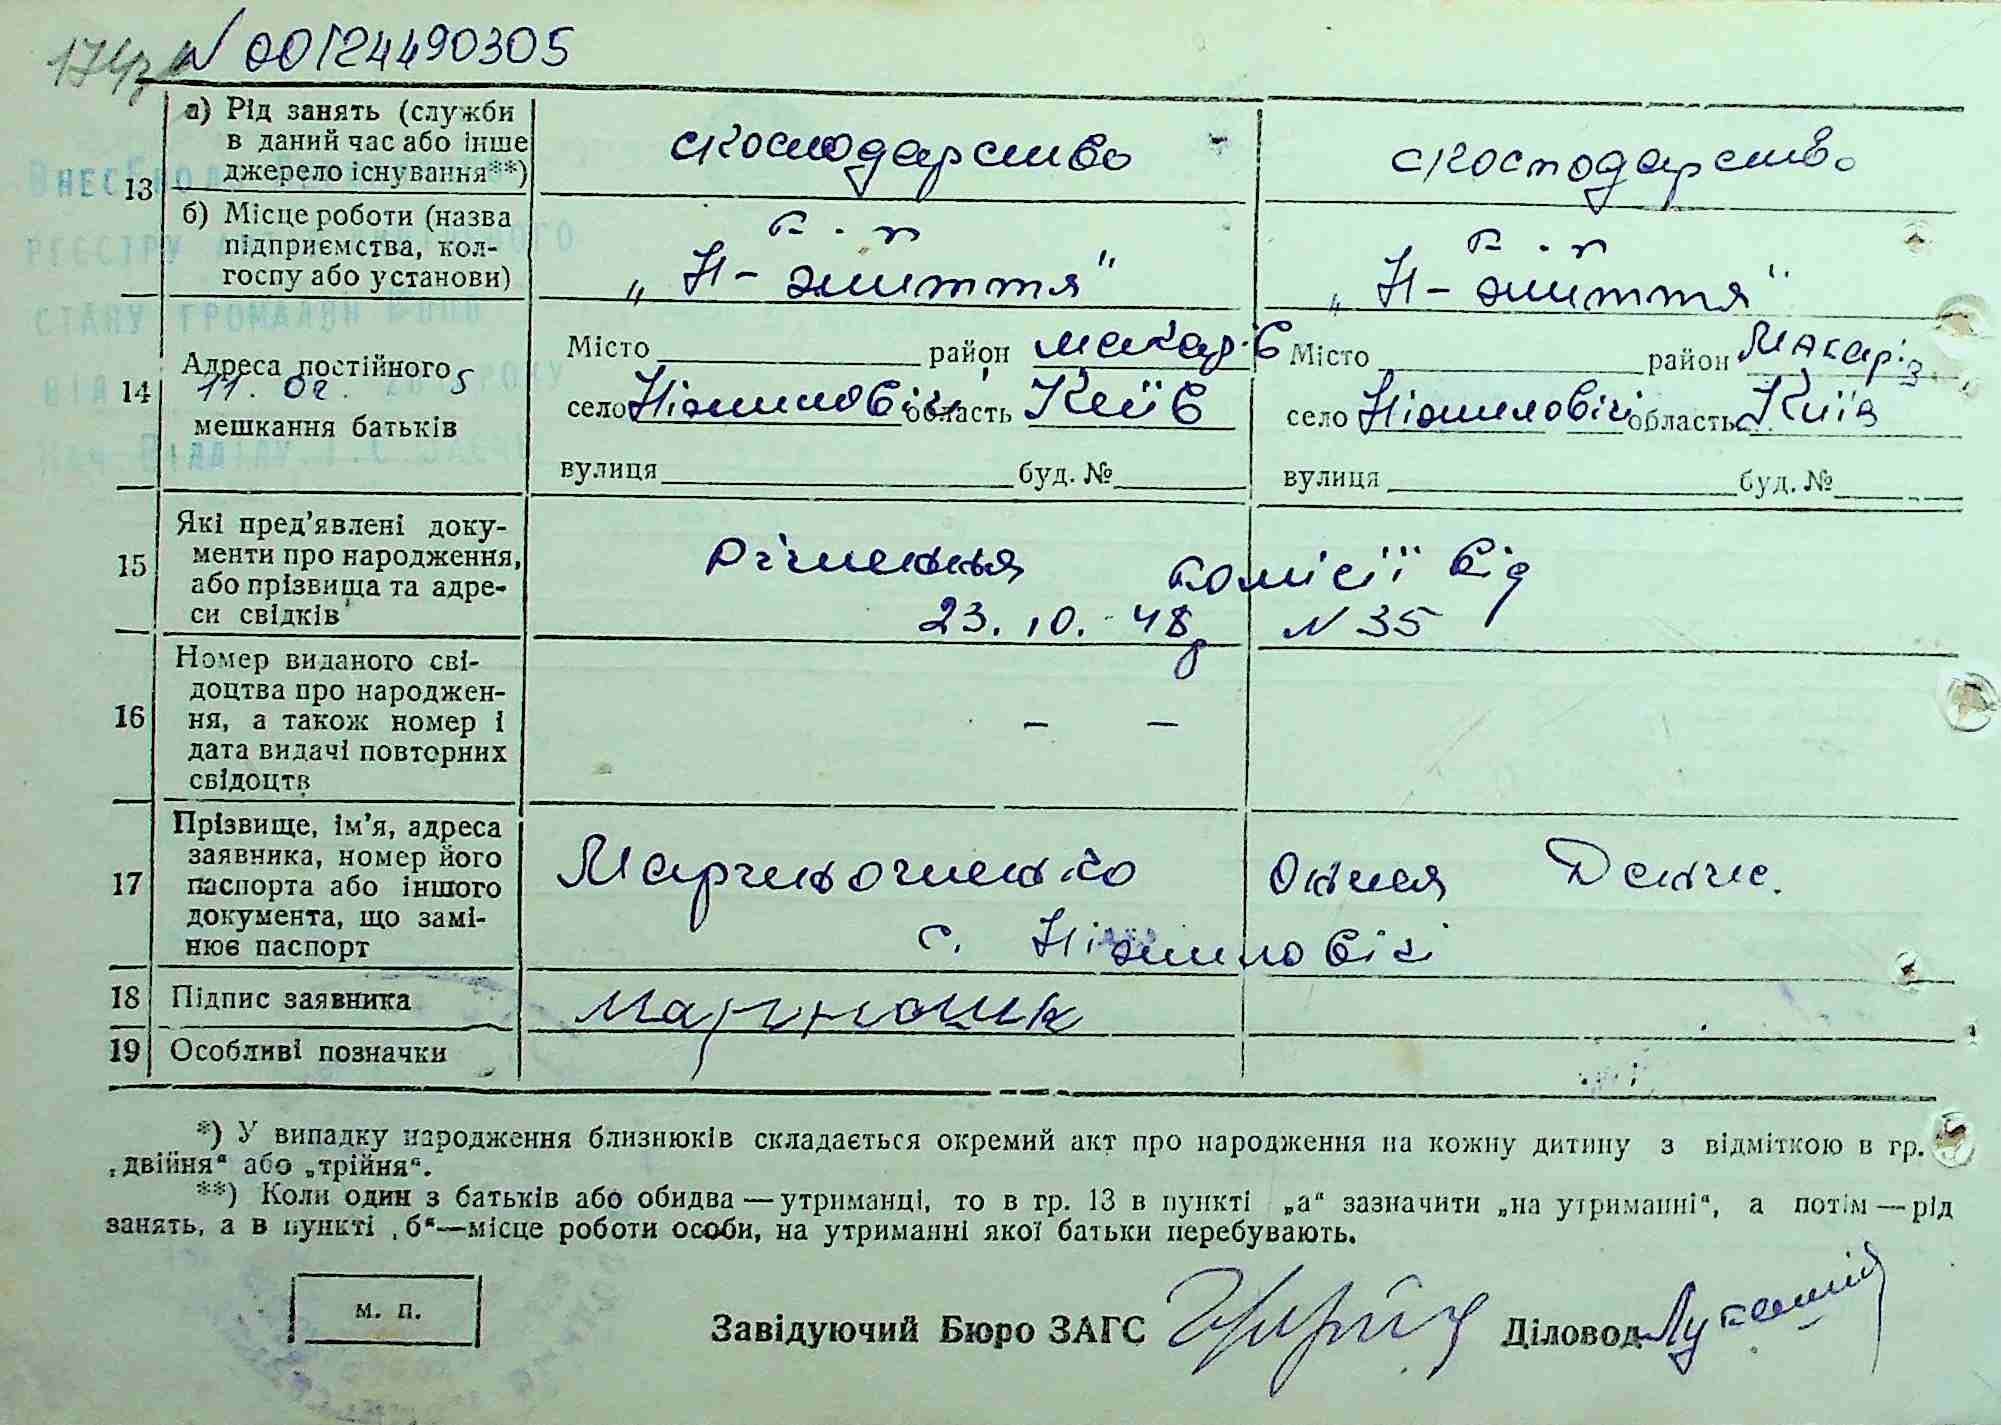 174 N 00124490305
13 а) Рід занять (служби в даний час або інше джерело існування**) сгосподарство сгосподарство
б) Місце роботи (назва підприємства, колгоспу або установи) к-п к-п
„Н-життя" „Н-життя"
14 Адреса постійного мешкання батьків
Місто район Макарів Місто район Макарів
село Ніжиловічі область Київ село Ніжиловічі область Київ
вулиця буд. № вулиця буд. №
Внесено до
реєстру актів цивільного
стану громадян
від 11. 02. 5 року
15 Які пред'явлені документи про народження, або прізвища та адреси свідків
Рішення комісії від
23. 10. 48р N 35
16 Номер виданого свідоцтва про народження, а також номер і дата видачі повторних свідоцтв – –
17 Прізвище, ім'я, адреса заявника, номер його паспорта або іншого документа, що замінює паспорт
с. Ніжиловічі
18 Підпис заявника
19 Особливі позначки
*) У випадку народження близнюків складається окремий акт про народження на кожну дитину з відміткою в гр.
„двійня“ або „трійня“.
**) Коли один з батьків або обидва — утриманці, то в гр. 13 в пункті „а“ зазначити „на утриманні“, а потім — рід
занять, а в пункті „б“—місце роботи особи, на утриманні якої батьки перебувають.
м. п.
Завідуючий Бюро ЗАГС Діловод